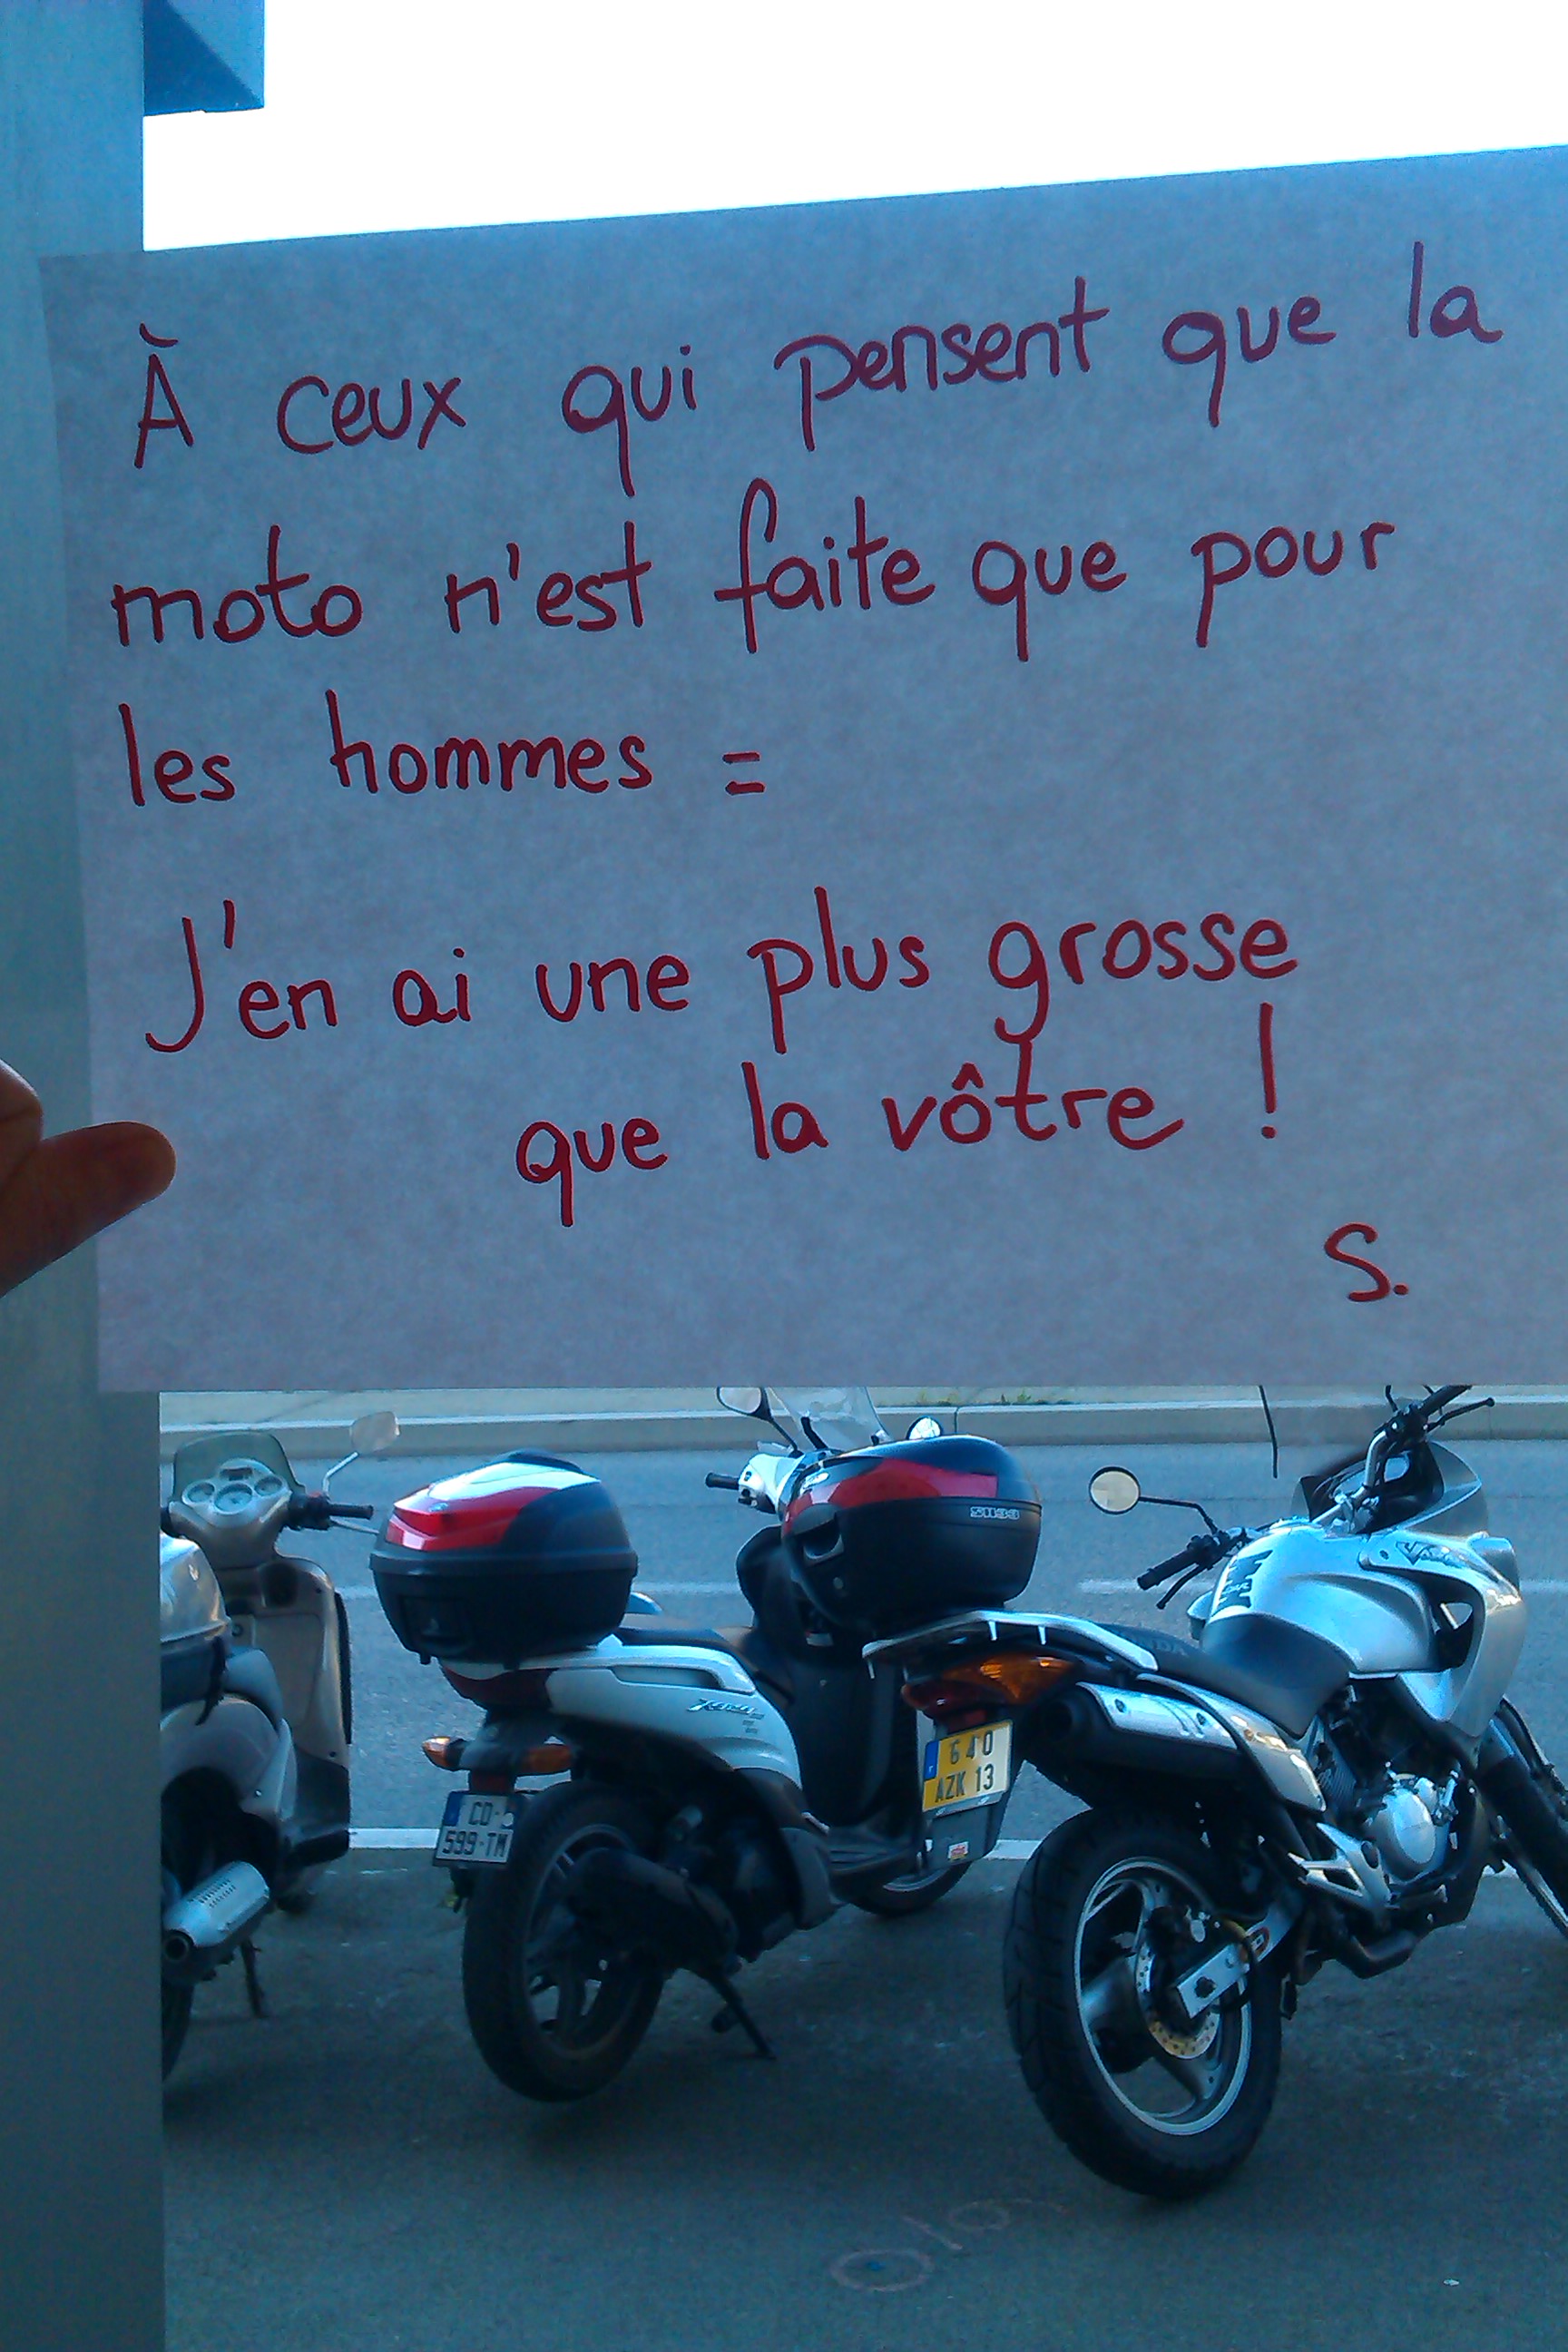 À ceux qui pensent que la
moto n'est faite que pour
les hommes =
J'en ai une plus grosse
que la vôtre !
S.
SH33
640
AZK 13
CD-
599-TM